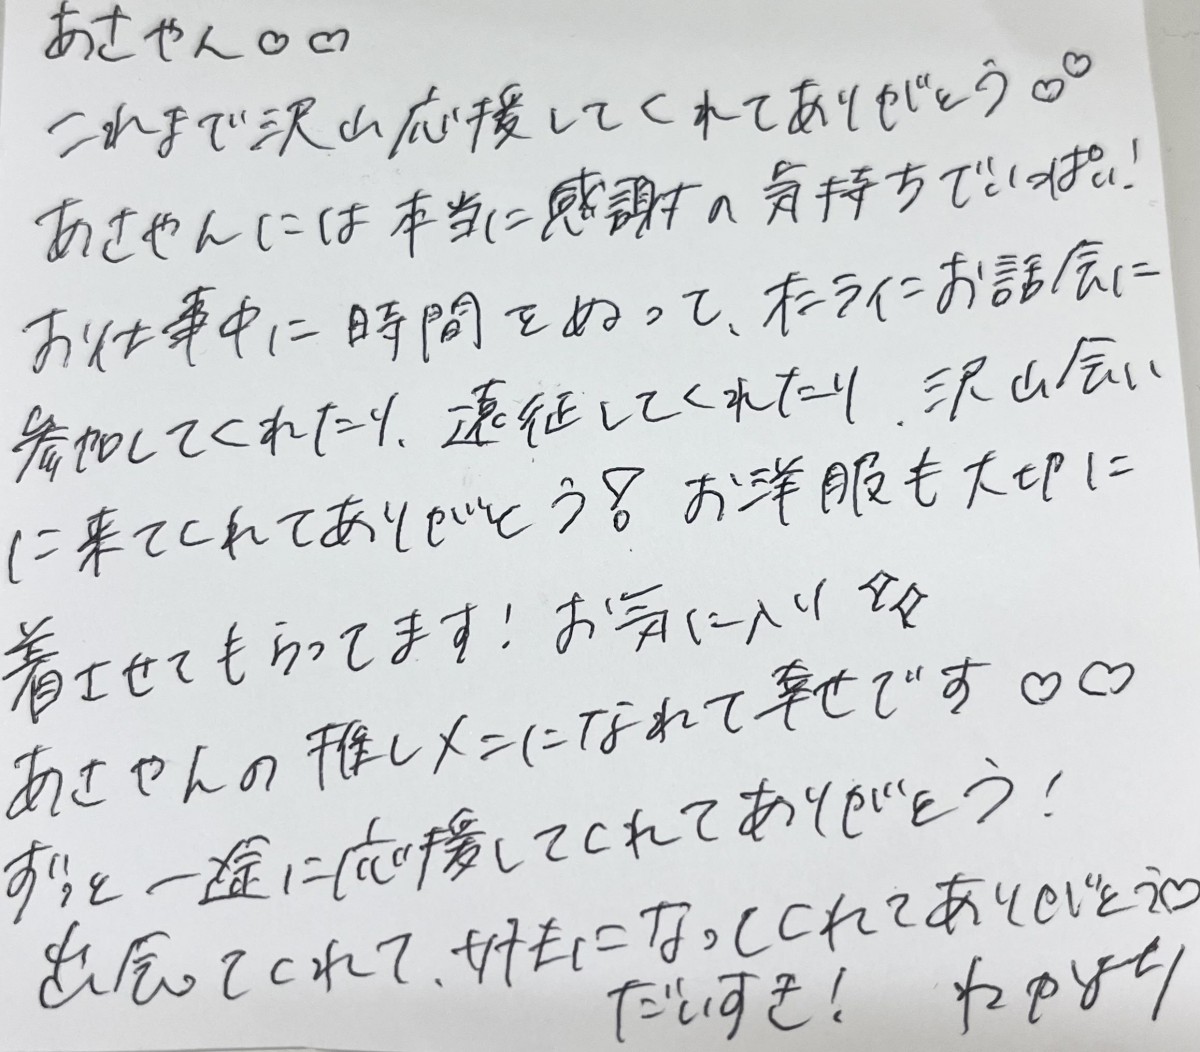 あさやん♡♡
これまで沢山応援してくれてありがとう♡♡
あさやんには本当に感謝の気持ちでいっぱい!
お仕事中に時間をぬって、オンラインお話会に
参加してくれたり、遠征してくれたり、沢山会い
に来てくれてありがとう! お洋服も大切に
着させてもらってます! お気に入り✧✧
あさやんの推しメンになれて幸せです♡♡
ずっと一途に応援してくれてありがとう!
出会ってくれて、好きになってくれてありがとう♡
だいすき! わかより